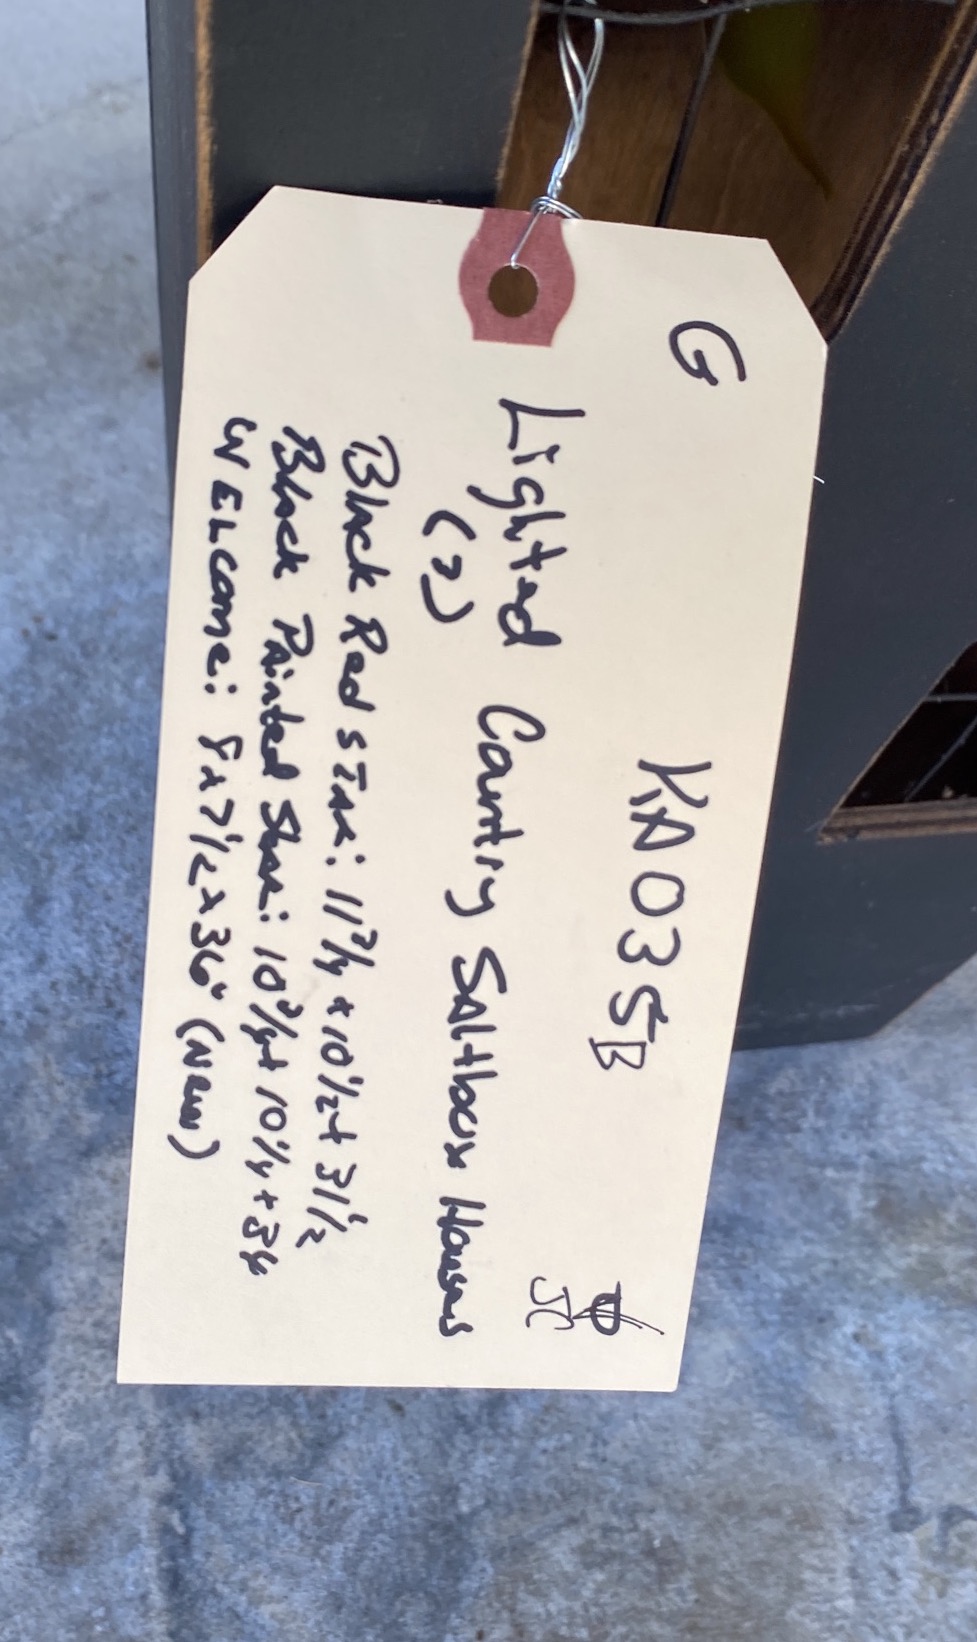 G KA035B
JC
Lighted Country Saltbox Houses
(2)
Black Red Star: 11 3/4 x 10 1/2 x 31 1/2
Black Painted Star: 10 3/4 x 10 1/4 x 34
WELcome: 8 x 7 1/2 x 36" (New)